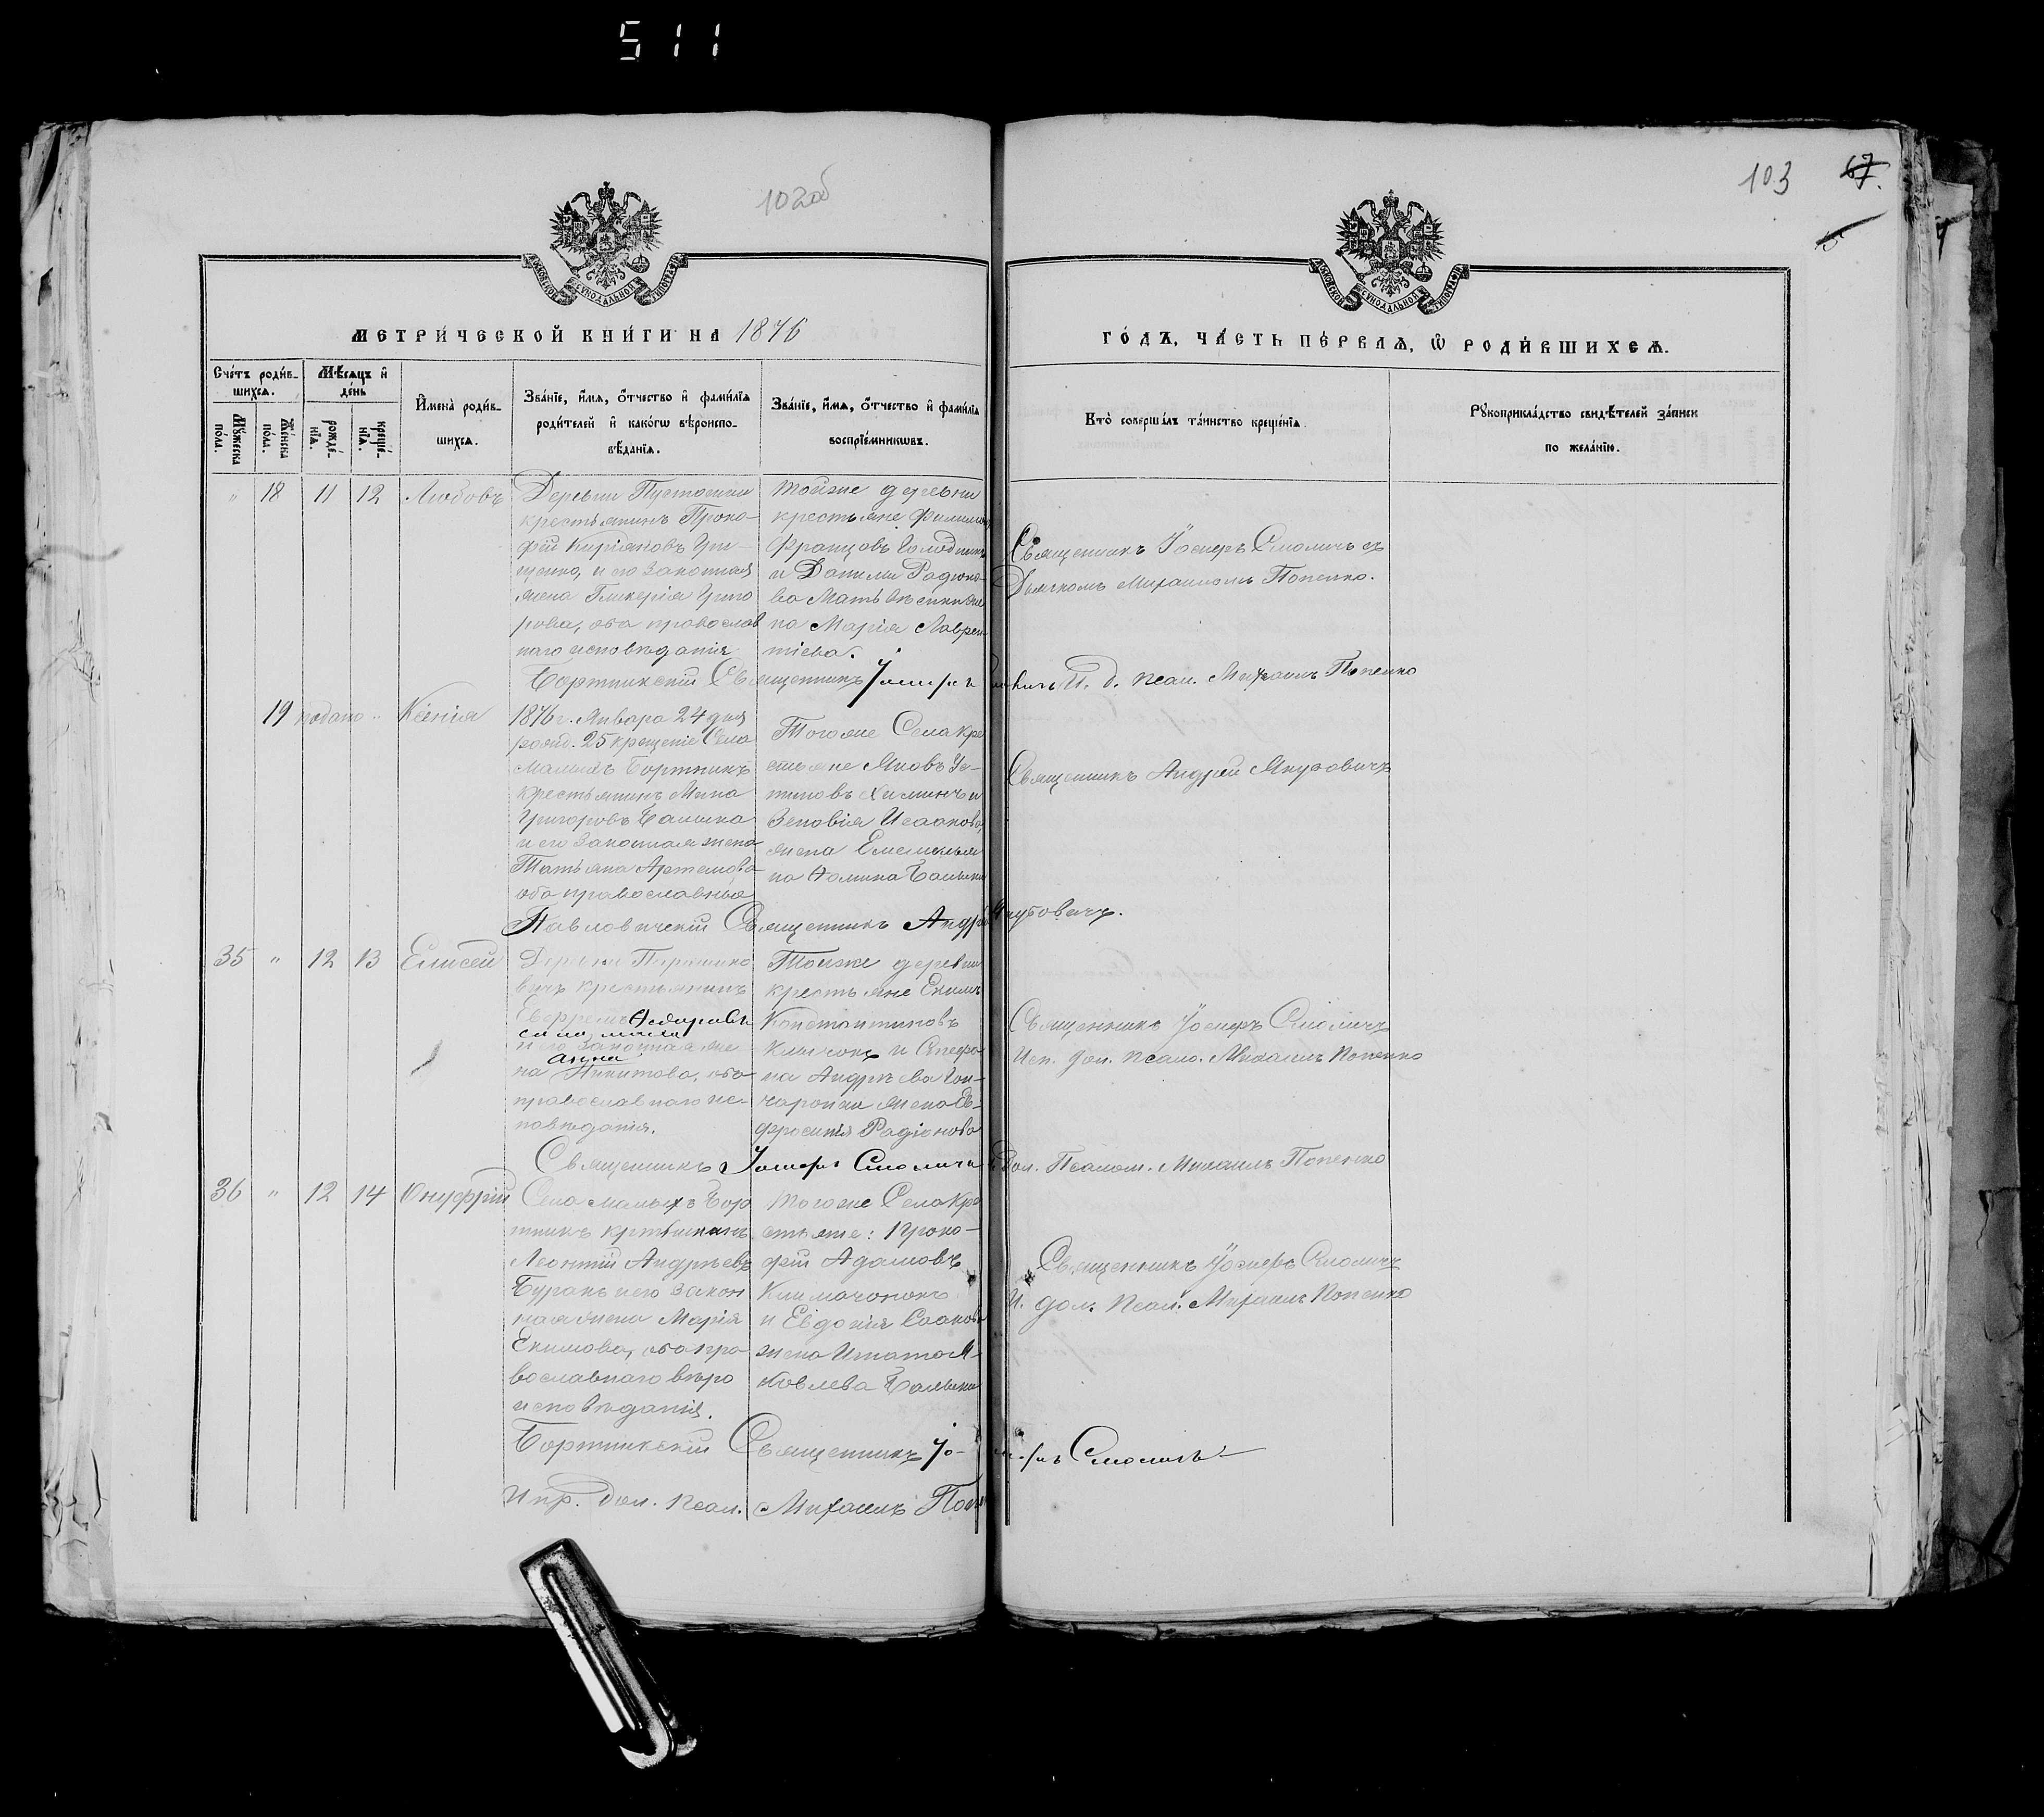 511
102об
103 67.
МОСКОВСКОЙ СУНОДАЛЬНОЙ ТИПОГРАФІИ
МОСКОВСКОЙ СУНОДАЛЬНОЙ ТИПОГРАФІИ
МЕТРИ́ЧЕСКОЙ КНИ́ГИ НА 1876
ГО́ДЪ, ЧА́СТЬ ПЕ́РВАѦ, Ѡ РОДИ́ВШИХСѦ.
Сче́тъ роди́в-
шихсѧ.
Мꙋ́жеска
по́ла.
Же́нска
по́ла.
Мѣ́сѧцъ и
де́нь
рожде́-
нїѧ.
креще́-
нїѧ.
И҆мена̀ роди́в-
шихсѧ.
Зва́нїе, и҆́мѧ, ѻ҆́тчество и҆ фами́лїѧ
роди́телей и҆ како́гѡ вѣроиспо-
вѣ́данїѧ.
Зва́нїе, и҆́мѧ, ѻ҆́тчество и҆ фами́лїѧ
воспрїе́мникѡвъ.
Кто̀ соверша́лъ та́инство креще́нїѧ.
Рꙋкоприкла́дство свидѣ́телей за́писи
по жела́нїю.
" 18 11 12 Любовь
Деревни
крестьянинъ Проко-
фій Киріяковъ Гри-
щенко, и его законная
жена Гликерія Григо
рова, оба православ
наго исповѣданія
тойже деревни
крестьяне Филимонъ
Францовъ
и Данилы Радіоно-
ва
на Марія Лаврен-
тіева.
Священникъ Іосифъ Смоличъ съ
Дьячкомъ Михаиломъ Попенко.
Бортникскій Священникъ Іосифъ И. д. псал. Михаилъ Попенко
19 " Ксенія
1876 г. Января 24 дня
рожд. 25 крещеніе Села
Малыхъ Бортникъ
крестьянинъ Мина
Григоровъ
и его законная жена
Татьяна Артемова
оба православные
Тогоже Села кре
стьяне Яковъ Ус-
тиновъ и
Зеновія Исаакова,
жена Емельяна
Священникъ Андрей Якубовичъ
Павловичскій Священникъ Андрей Якубовичъ.
35 " 12 13 Елисей
Деревни
вичъ крестьянинъ
Ефремъ Ѳедоровъ
и его законная же
Анна
на Никитова, оба
православнаго ис-
повѣданія.
Тойже деревни
крестьяне Екимъ
Константиновъ
и Стефа-
на Андреева Гон-
жена Ев-
фросинія Радіонова
Священникъ Іосифъ Смоличъ
Исп. дол. псало. Михаилъ Попенко
Священникъ Іосифъ Смоличъ дол. Псалом. Михаилъ Попенко
36 " 12 14 Онуфрій
Села малыхъ Бор
тникъ крестьянинъ
Леонтій Андреевъ
Буракъ и его закон
ная жена Марія
Екимова, оба пра
вославнаго вѣро
исповѣданія.
тогоже Села кре
стьяне: Проко-
фій Адамовъ
Климачонокъ
и Евдокія Саакова
жена Игната Я-
ковлева
Священникъ Іосифъ Смоличъ
И. дол. псал. Михаилъ Попенко
Бортникскій Священникъ Іо-сифъ Смоличъ
Испр. дол. псал. Михаилъ Попенко